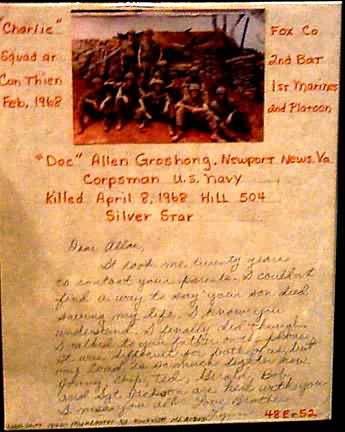 "Charlie"
Squad at
Con Thien
Feb, 1968
Fox Co
2nd Bat
1st Marines
2nd Platoon
"Doc" Allen Groshong. Newport News. Va
Corpsman U.S. Navy
Killed April 8, 1968 HILL 504
Silver Star
Dear Allen,
It took me twenty years
to contact your parents. I couldn't
find a way to say "your son died
saving my life. I know you
understand. I finally did though.
I talked to your father on the phone.
It was difficult for both of us, but
my load is so much lighter now.
Chip, Ted, Bob,
and Sgt are here with you
I miss you all. Love Brother
48Er52